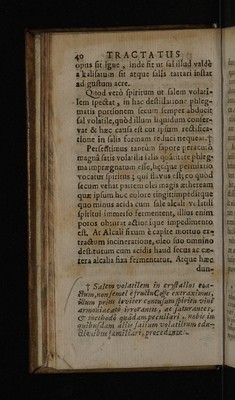 40 TRACTATUS
opus sit igne, inde fit ut sal illud valdè
alkalisatum sit atque salis tartari instar
ad gustum acre.
Quod verò spiritum ut salem volati-
lem spectat, in hac destillatione phleg-
matis portionem secum semper abducit
sal volatile, quod illum liquidum conser-
vat & hæc causa est cur ipsum rectifica-
tione in salis formam reduci nequeat.
Persessimus tantùm sapore
magnâ satis volatilis salis quantitate phleg-
ma imprægnatum esse, hicque
vocatur spiritus; qui flavus est; eo quod
secum vehat partem olei magis ætheream
quæ ipsum hoc colore tingit; impeditque
quo minus acida cum sale alcali volatili
spiritui immerso fermentent, illius enim
poros obturat actionique impedimento
est. At Alcali fixum è capite mortuo ex-
tractum incineratione, oleo suo omnino
destitutum cum acidis haud secus ac cæ-
tera alcalia fixa fermentatur, Atque hæc
dun-
Salem volatilem in crystallos
non semel è fruHu Coffe extraximus,
illum priùs leviter contusum spiritu vini
armoniacato irrorantes, ac saturantes,
& methodo quâdam peculiari, nobis in
quibusdam aliis salium volatilium
familiari, procedente.